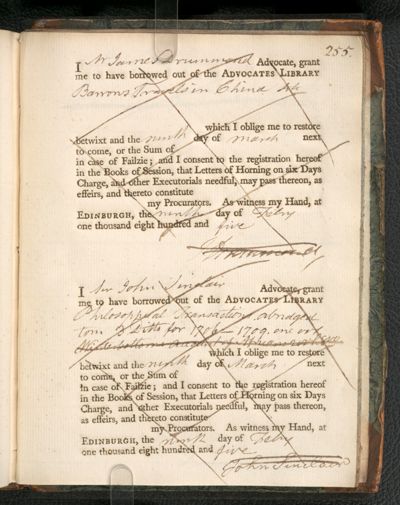 255.
I Mr James Drummond Advocate, grant
me to have borrowed out of the ADVOCATES LIBRARY
Barrons Travels in China 4to
which I oblige me to restore
betwixt and the ninth day of march next
to come, or the Sum of
in case of Failzie; and I consent to the registration hereof
in the Books of Session, that Letters of Horning on six Days
Charge, and other Executorials needful, may pass thereon, as
effeirs, and thereto constitute
my Procurators. As witness my Hand, at
EDINBURGH, the ninth day of Febry
one thousand eight hundred and five
J Drummond
I Mr John Sinclair Advocate, grant
me to have borrowed out of the ADVOCATES LIBRARY
Philosophical Transactions abridged
tom 3 Ditto for 1706 – 1709. one vol
which I oblige me to restore
betwixt and the ninth day of March next
to come, or the Sum of
in case of Failzie; and I consent to the registration hereof
in the Books of Session, that Letters of Horning on six Days
Charge, and other Executorials needful, may pass thereon,
as effeirs, and thereto constitute
my Procurators. As witness my Hand, at
EDINBURGH, the ninth day of Febry
one thousand eight hundred and five
John Sinclair